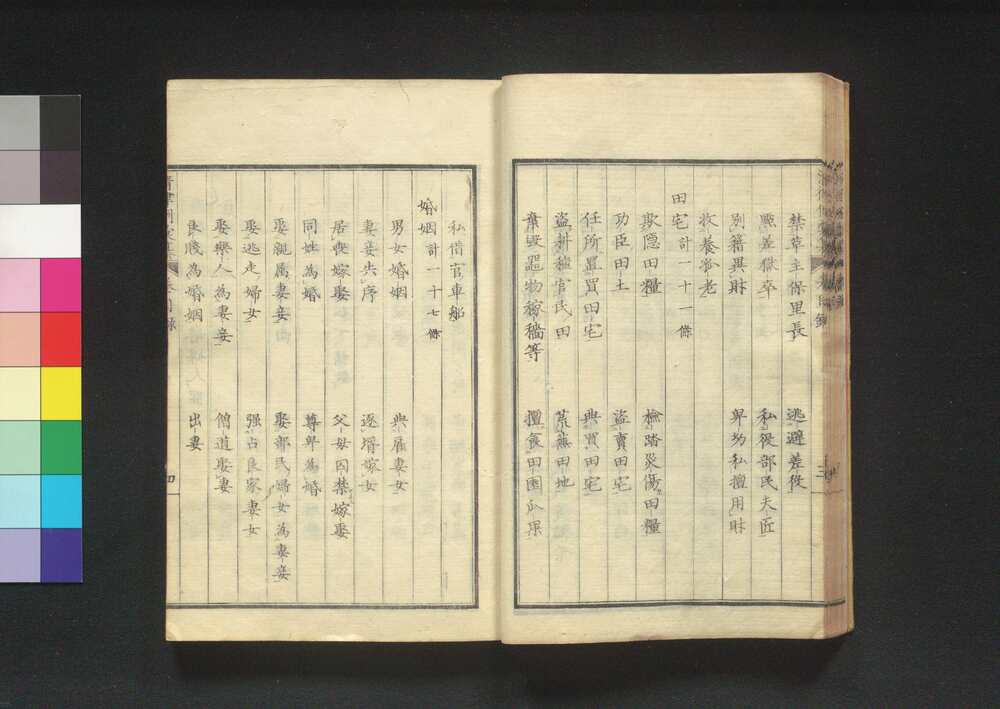 禁革主保里長　逃避差役
點差獄卒　私役部民夫匠
別籍異財　卑幼私擅用財
收養孤老
田宅計一十一條
欺隱田糧　檢踏災傷田糧
功臣田土　盜賣田宅
任所置買田宅　典買田宅
盜耕種官民田　荒蕪田地
棄毀器物稼穡等　擅食田園瓜果
私借官車船
婚姻計一十七條
男女婚姻　典雇妻女
妻妾失序　逐壻嫁女
居喪嫁娶　父母囚禁嫁娶
同姓為婚　尊卑為婚
娶親屬妻妾　娶部民婦女為妻妾
娶逃走婦女　强占良家妻女
娶樂人為妻妾　僧道娶妻
良賤為婚姻　出妻
目錄
四